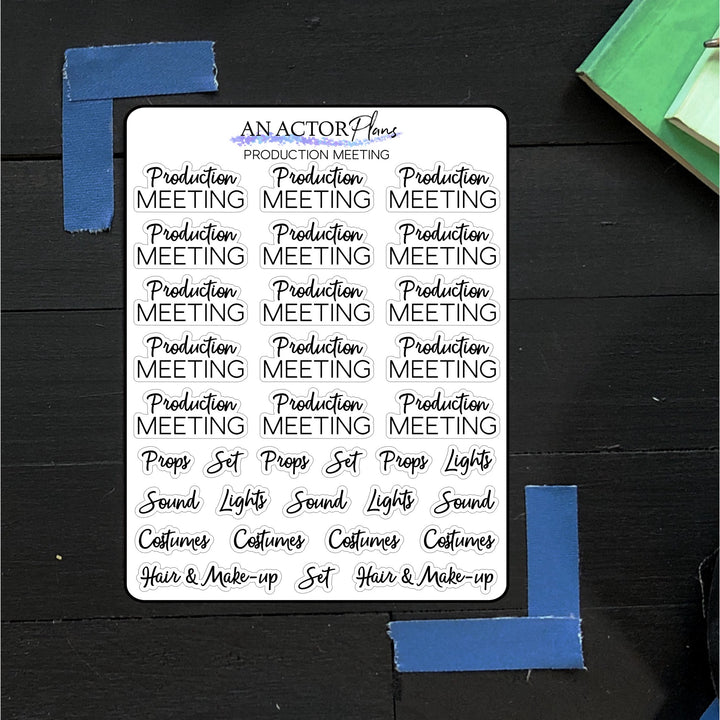 AN ACTOR Plans
PRODUCTION MEETING
Production Production Production
MEETING MEETING MEETING
Production Production Production
MEETING MEETING MEETING
Production Production Production
MEETING MEETING MEETING
Production Production Production
MEETING MEETING MEETING
Production Production Production
MEETING MEETING MEETING
Props Set Props Set Props Lights
Sound Lights Sound Lights Sound
Costumes Costumes Costumes Costumes
Hair & Make-up Set Hair & Make-up